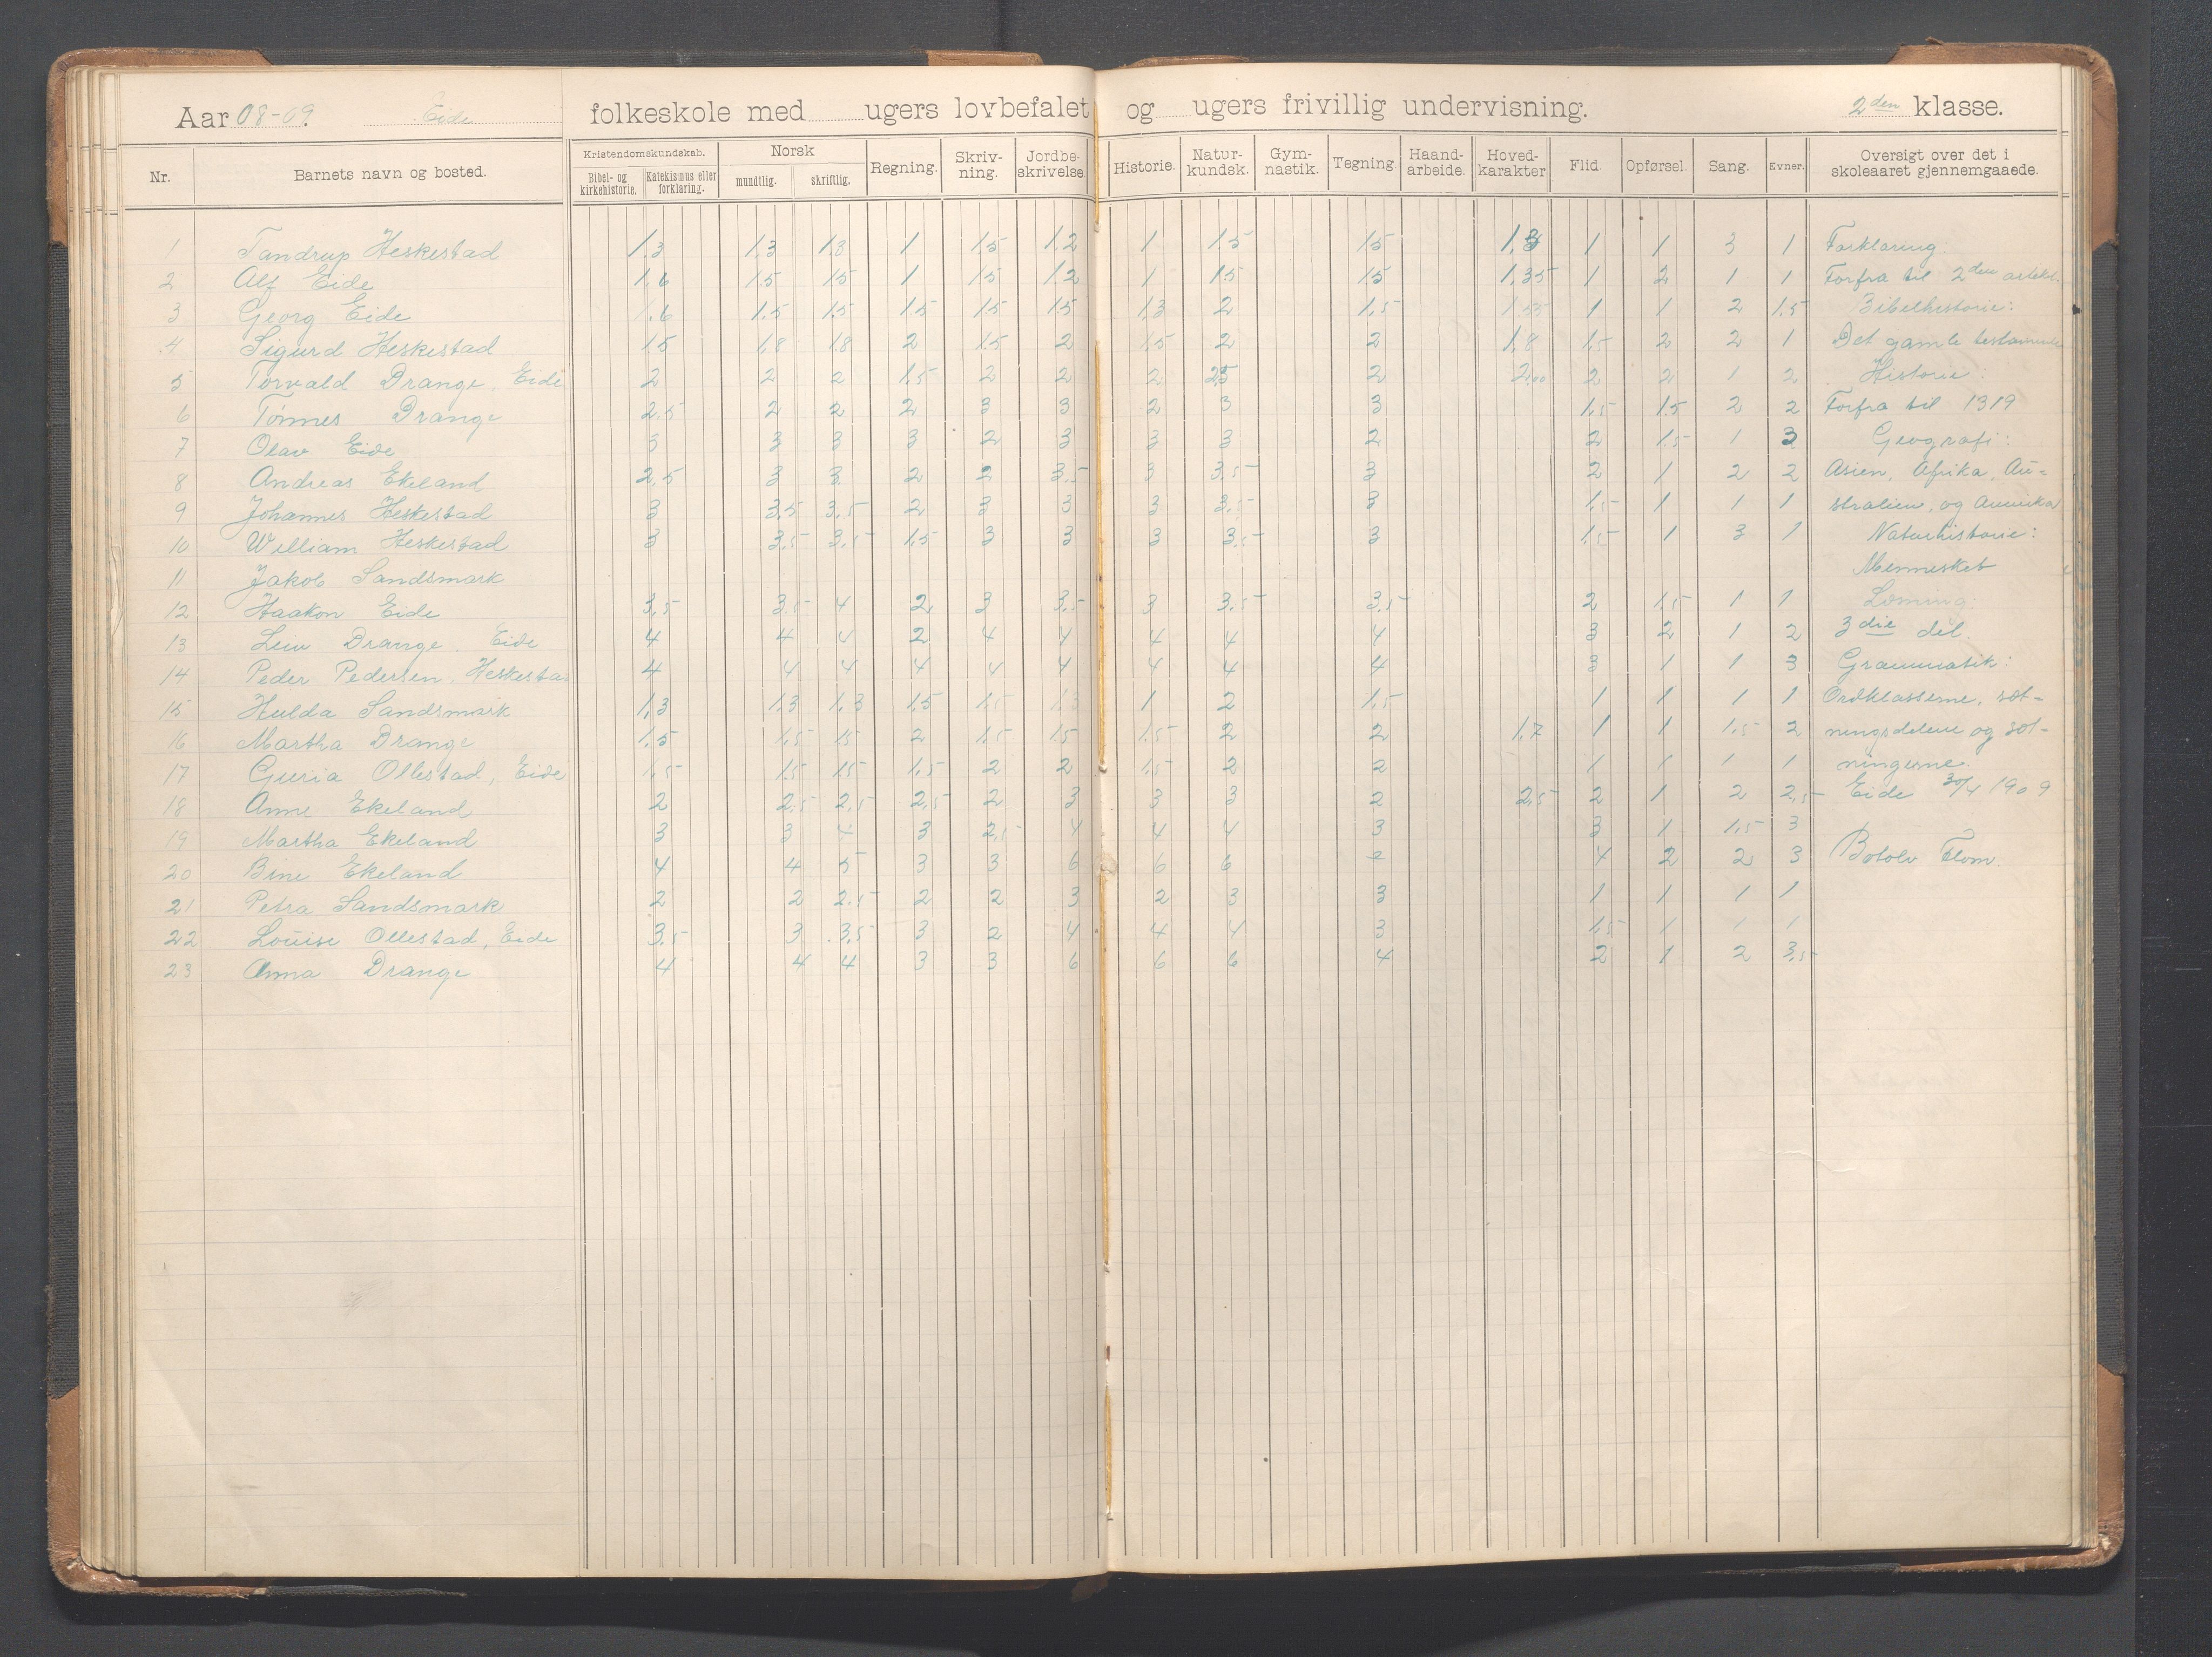 Aar 08-09. Eide folkeskole med ugers lovbefalet og ugers frivillig undervisning. 2den klasse.
Nr. Barnets navn og bosted. Kristendomskundskab. Bibel- og kirkehistorie. Katekismus eller forklaring. Norsk mundtlig. skriftlig. Regning. Skriv-ning. Jordbe-skrivelse. Historie. Natur-kundsk. Gym-nastik. Tegning. Haand-arbeide. Hoved-karakter Flid. Opførsel. Sang. Evner. Oversigt over det i skoleaaret gjennemgaaede.
1 Tandrup Heskestad 1,3 1,3 1,8 1 1,5 1,2 1 1,5 1,5 1,3 1 1 3 1 Forklaring
2 Alf Eide 1,6 1,5 1,5 1 1,5 1,2 1 1,5 1,5 1,35 1 2 1 1 Forfra til 2den artikel.
3 Georg Eide 1,6 1,5 1,5 1,5 1,5 1,5 1,3 2 1,5 1,55 1 1 2 1,5 Bibelhistorie:
4 Sigurd Heskestad 1,5 1,8 1,8 2 1,5 2 1,5 2 2 1,8 1,5 2 2 1 Det gamle testamente
5 Torvald Drange, Eide 2 2 2 1,5 2 2 2 2,5 2 2,00 2 2 1 2 Historie:
6 Tønnes Drange 2,5 2 2 2 3 3 2 3 3 1,5 1,5 2 2 Forfra til 1319
7 Olav Eide 3 3 3 3 2 3 3 3 2 2 1,5 1 3 Geografi:
8 Andreas Ekeland 2,5 3 3 2 2 3,5 3 3,5 3 2 1 2 2 Asien, Afrika, Au=
9 Johannes Heskestad 3 3,5 3,5 2 3 3 3 3,5 3 1,5 1 1 1 stralien, og Amerika
10 William Heskestad 3 3,5 3,5 1,5 3 3 3 3,5 3 1,5 1 3 1 Naturhistorie:
11 Jakob Sandsmark Mennesket
12 Haakon Eide 3,5 3,5 4 2 3 3,5 3 3,5 3,5 2 1,5 1 1 Læsning:
13 Leiv Drange, Eide 4 4 4 2 4 4 4 4 4 3 2 1 2 3die del.
14 Peder Pedersen, Heskestad 4 4 4 4 4 4 4 4 4 3 1 1 3 Grammatik:
15 Hulda Sandsmark 1,3 1,3 1,3 1,5 1,5 1,3 1 2 1,5 1 1 1 1 Ordklasserne, sæt-
16 Martha Drange 1,5 1,5 1,5 2 1,5 1,5 1,5 2 2 1,7 1 1 1,5 2 ningsdelene og sæt-
17 Guria Ollestad, Eide 1,5 1,5 1,5 1,5 2 2 1,5 2 2 1 1 1 1 ningerne.
18 Anne Ekeland 2 2,5 2,5 2,5 2 3 3 3 2 2,5 2 1 2 2,5 Eide 30/4 1909
19 Martha Ekeland 3 3 4 3 2,5 4 4 4 3 3 1 1,5 3
20 Bine Ekeland 4 4 5 3 3 6 6 6 2 4 2 2 3 Botolv Flom.
21 Petra Sandsmark 2 2 2,5 2 2 3 2 3 3 1 1 1 1
22 Louise Ollestad, Eide 3,5 3 3,5 3 2 4 4 4 3 1,5 1 1 1
23 Anna Drange 4 4 4 3 3 6 6 6 4 2 1 2 3,5